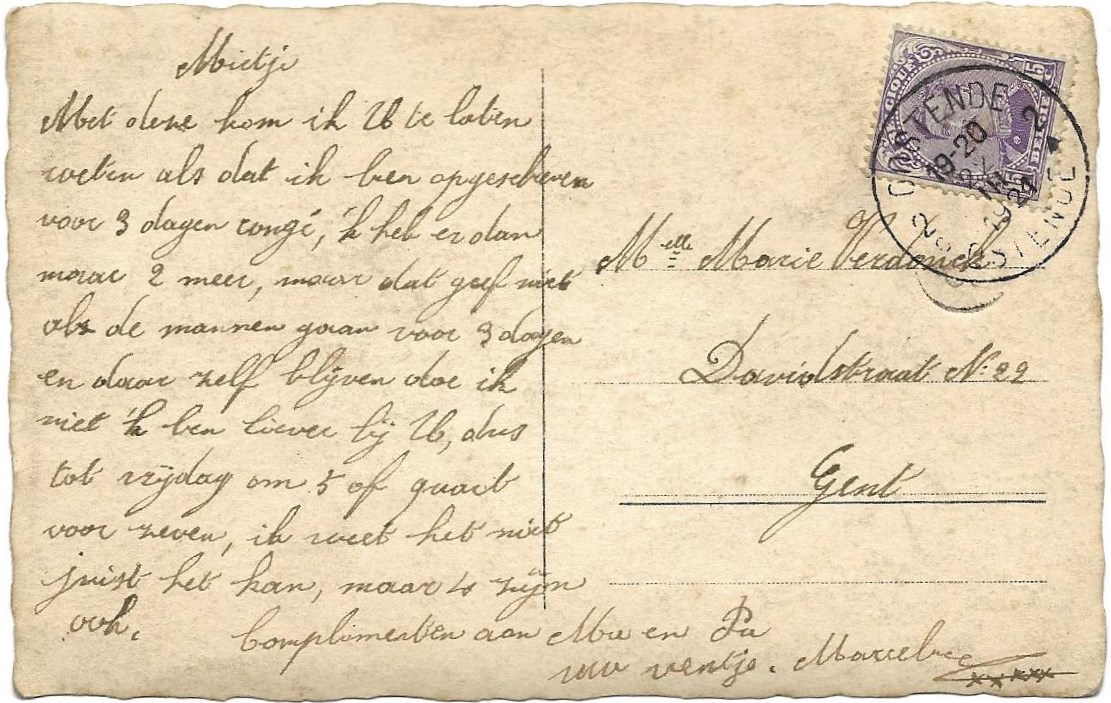 Mietje
Met deze kom ik U te laten
weten als dat ik ben opgeschreven
voor 3 dagen congé, 'k heb er dan
maar 2 meer, maar dat geef niet
als de mannen gaan voor 3 dagen
en daar zelf blijven doe ik
niet 'k ben liever bij U, dus
tot vrijdag om 5 of quart
voor zeven, ik weet het niet
juist het kan, maar zijn
ook.
Complimenten aan Me en Pa
uw ventje. Marcel
xxxxx
BELGIQUE
15
BELGIE
OOSTENDE 2
19-20
III
1924
2 OOSTENDE
Melle Marie Verdonck
Davidstraat N: 22
Gent